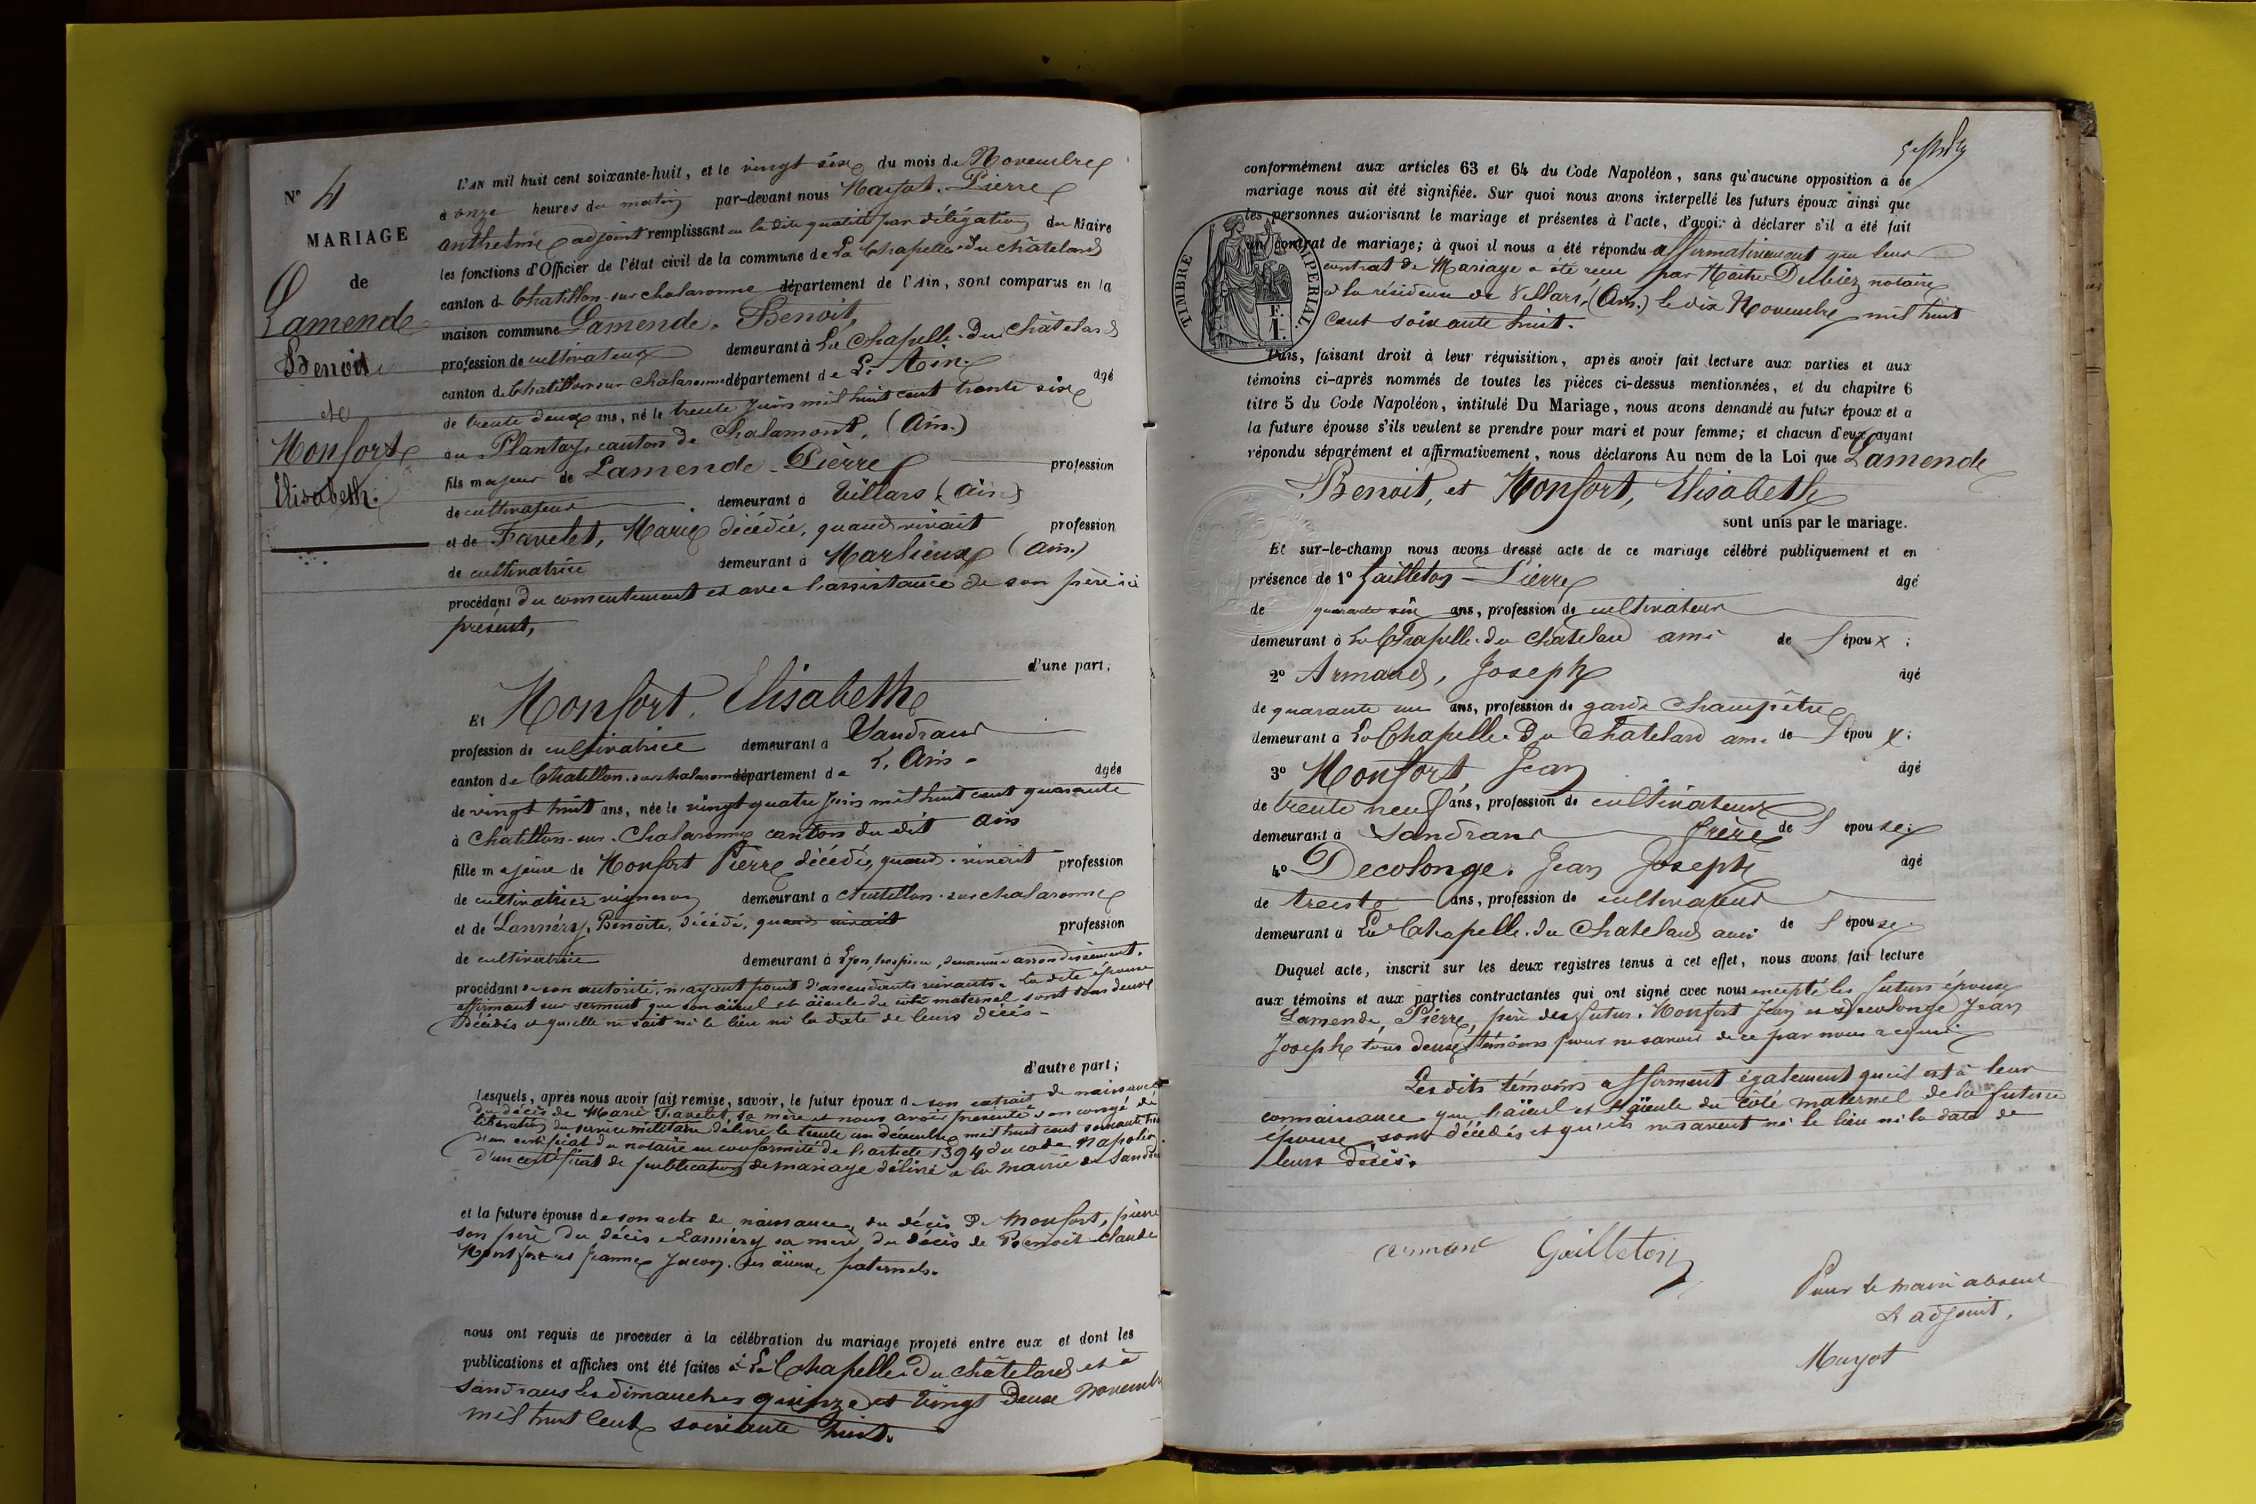 N° 4
MARIAGE
de
Lamende
Benoit
et
Monfort
Elisabeth.
L'AN mil huit cent soixante-huit, et le vingt six du mois de Novembre
à onze heures du matin par-devant nous Mayot. Pierre
anthelme adjoint remplissant en la dite qualité par délégation du Maire
les fonctions d'Officier de l'état civil de la commune de La Chapelle du Châtelard
canton de Chatillon-sur-chalaronne département de l'Ain, sont comparus en la
maison commune Lamende. Benoit,
profession de cultivateur demeurant à La Chapelle. du Châtelard
canton de Chatillon sur Chalaronne département de L'Ain. âgé
de trente deux ans, né le trente Juin mil huit cent trente six
au Plantay, canton de Chalamont. (Ain.)
fils majeur de Lamende - Pierre profession
de cultivateur demeurant à Villars (Ain)
et de Favelet, Marie décédée, quand vivait profession
de cultivatrice demeurant à Marlieux (Ain.)
procédant du consentement et avec l'assistance de son père ici
présent,
d'une part;
Et Monfort. Elisabeth
profession de cultivatrice demeurant à Sandrans
canton de Chatillon-sur chalaronne département de L'Ain. âgée
de vingt huit ans, née le vingt quatre Juin mil huit cent quarante
à Chatillon-sur-Chalaronne canton du dit Ain
fille majeure de Monfort Pierre décédé, quand vivait profession
de cultivatier vigneron demeurant à Chatillon-sur chalaronne
et de Lannéry, Benoite, décédé, quand vivait profession
de cultivatrice demeurant à Lyon, hospice, deuxième arrondissement.
procédant de son autorité, n'ayant point d'ascendants vivants. la dite épouse
affirmant sur serment que son aïeul et aïeule du côté maternel sont tous deux
décédés et qu'elle ne sait ni le lieu ni la date de leurs décès-
d'autre part;
Lesquels, après nous avoir fait remise, savoir, le futur époux de son extrait de naissance
du décès de Marie Favelet, sa mère et nous avoir présenté son congé de
libération du service militaire délivré le trente un décembre mil huit cent soixante trois
d'un certificat du notaire en conformité de l'article 1394 du code Napoléon
d'un certificat de publication de mariage délivré à la mairie de Sandrans
et la future épouse de son acte de naissance, du décès de Monfort, pierre
son père du décès de Lannéry sa mère, du décès de Benoit Claude
Montfort et Jeanne Jacon. ses aïeux paternels.
nous ont requis de procéder à la célébration du mariage projeté entre eux et dont les
publications et affiches ont été faites à La Chapelle. Du châtelard et à
Sandrans les dimanches quinze et vingt deux Novembre
mil huit cent soixante huit.
conformément aux articles 63 et 64 du Code Napoléon, sans qu'aucune opposition à ce
mariage nous ait été signifiée. Sur quoi nous avons interpellé les futurs époux ainsi que
les personnes autorisant le mariage et présentes à l'acte, d'avoir à déclarer s'il a été fait
un contrat de mariage; à quoi il nous a été répondu affirmativement que leur
contrat de Mariage a été reçu par Maître Dubiez notaire
à la résidence de Villars, (Ain.) le dix Novembre mil huit
cent soixante huit.
TIMBRE IMPÉRIAL.
1 F.
Puis, faisant droit à leur réquisition, après avoir fait lecture aux parties et aux
témoins ci-après nommés de toutes les pièces ci-dessus mentionnées, et du chapitre 6
titre 5 du Code Napoléon, intitulé Du Mariage, nous avons demandé au futur époux et à
la future épouse s'ils veulent se prendre pour mari et pour femme; et chacun d'eux ayant
répondu séparément et affirmativement, nous déclarons Au nom de la Loi que Lamende
Benoit, et Monfort, Elisabeth
sont unis par le mariage.
Et sur-le-champ nous avons dressé acte de ce mariage célébré publiquement et en
présence de 1° Gailleton - Pierre âgé
de quarante six ans, profession de cultivateur
demeurant à La Chapelle. du Chatelard ami de l'époux;
2° Armand, Joseph âgé
de quarante un ans, profession de garde Champêtre
demeurant à La Chapelle. Du Chatelard ami de l'époux;
3° Monfort Jean âgé
de trente neuf ans, profession de cultivateur
demeurant à Sandrans frère de l'épouse;
4° Decolonge. Jean Joseph âgé
de trente ans, profession de cultivateur
demeurant à La Chapelle. du Chatelard ami de l'épouse
Duquel acte, inscrit sur les deux registres tenus à cet effet, nous avons fait lecture
aux témoins et aux parties contractantes qui ont signé avec nous excepté les futurs époux
Lamende, Pierre, père des futur. Monfort Jean et Decolonge Jean
Joseph tous deux témoins pour ne savoir de ce par nous requis
Les dits témoins affirment également qu'il est à leur
connaissance que l'aïeul et l'aïeule du côté maternel de la future
épouse sont décédés et qu'ils ne savent ni le lieu ni la date de
leurs décès.
armand Gailleton
Pour le maire absent
L'adjoint,
Mayot